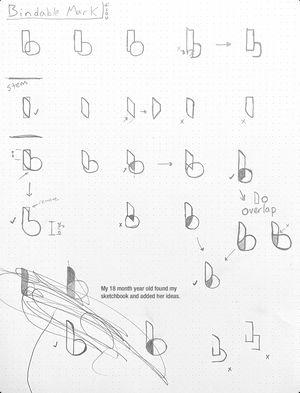 Bindable Mark
stem
remove
Do
overlap
My 18 month year old found my
sketchbook and added her ideas.